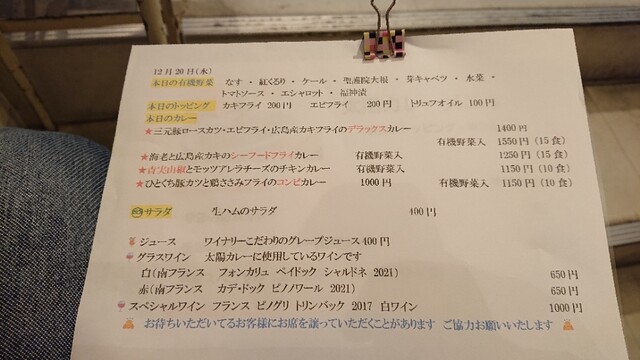 12月20日(水)
本日の有機野菜 なす・紅くるり・ケール・聖護院大根・芽キャベツ・水菜・
トマトソース・エシャロット・福神漬
本日のトッピング カキフライ 200円 エビフライ 200円 トリュフオイル 100円
本日のカレー
★三元豚ロースカツ・エビフライ・広島産カキフライのデラックスカレー 1400円
有機野菜入 1550円(15食)
★海老と広島産カキのシーフードフライカレー 有機野菜入 1250円(15食)
★青実山椒とモッツアレラチーズのチキンカレー 有機野菜入 1150円(10食)
★ひとくち豚カツと鶏ささみフライのコンビカレー 1000円 有機野菜入 1150円(10食)
サラダ 生ハムのサラダ 400円
ジュース ワイナリーこだわりのグレープジュース 400円
グラスワイン 太陽カレーに使用しているワインです
白(南フランス フォンカリュ ペイドック シャルドネ 2021) 650円
赤(南フランス カデ・ドック ピノノワール 2021) 650円
スペシャルワイン フランス ピノグリ トリンバック 2017 白ワイン 1000円
お待ちいただいてるお客様にお席を譲っていただくことがあります ご協力お願いいたします